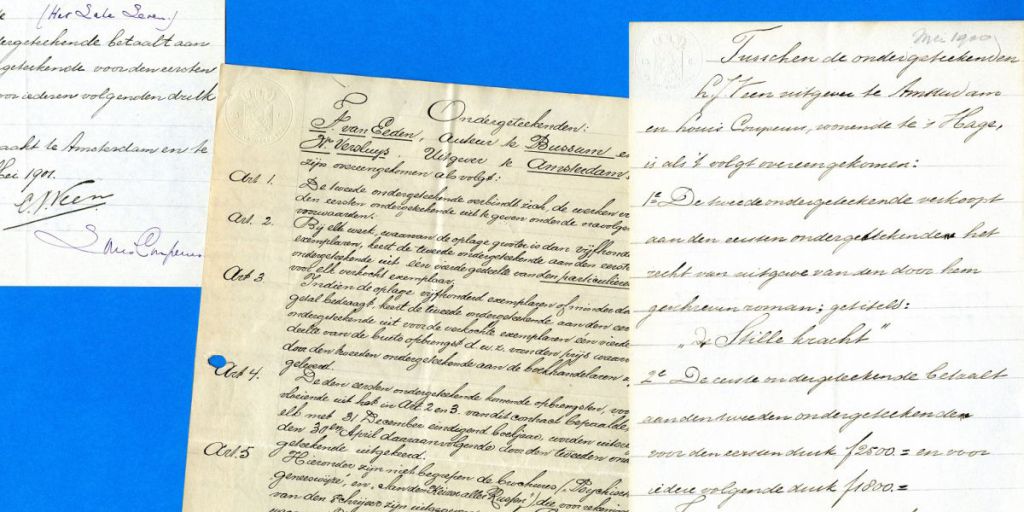 (Het late leven)
dergeteekende betaalt aan
geteekende voor den eersten
voor iederen volgenden druk
aakt te Amsterdam en te
Mei 1901.
L.J. Veen
Louis Couperus
Ondergeteekenden:
F. van Eeden, Auteur te Bussum en
W. Versluys Uitgever te Amsterdam.
zijn overeengekomen als volgt:
Art 1.
De tweede ondergeteekende verbindt zich, de werken v
den eersten ondergeteekende uit te geven onder de navolgen
voorwaarden.
Art. 2.
Bij elk werk, waarvan de oplage grooter is dan vijfhonderd
exemplaren, keert de tweede ondergeteekende aan den eerste
ondergeteekende uit een vierde gedeelte van den particuliere
voor elk verkocht exemplaar.
Art 3
Indien de oplage vijfhonderd exemplaren of minder da
getal bedraagt, keert de tweede ondergeteekende aan den eer
ondergeteekende uit voor de verkochte exemplaren een vierde
deelte van de bruto opbrengst d.w.z. van den prijs waarv
door den tweeden ondergeteekende aan de boekhandelaren
geleverd.
Art 4.
De den eersten ondergeteekende komende opbrengsten, voo
vloeiende uit het in Art. 2 en 3. van dit contract bepaalde
elk met 31 December eindigend boekjaar, worden uiterl
den 30en April daaraanvolgende door den tweeden onde
geteekende uitgekeerd.
Art. 5
Hieronder zijn niet begrepen de brochures („Psychisch
geneeswijze, en „aan den Keizer aller Russen”) die voor rekening
van den schrijver zijn uitgegeven
Mei 1900
Tusschen de ondergeteekenden
L J Veen uitgever te Amsterdam
en Louis Couperus, wonende te 's Hage,
is als 't volgt overeengekomen:
1e De tweede ondergeteekende verkoopt
aan den eersten ondergeteekende het
recht van uitgave van den door hem
geschreven roman; getiteld:
„De Stille kracht”
2e De eerste ondergeteekende betaalt
aan den tweeden ondergeteekende
voor den eersten druk f2500.= en voor
iedere volgende druk f1800.=